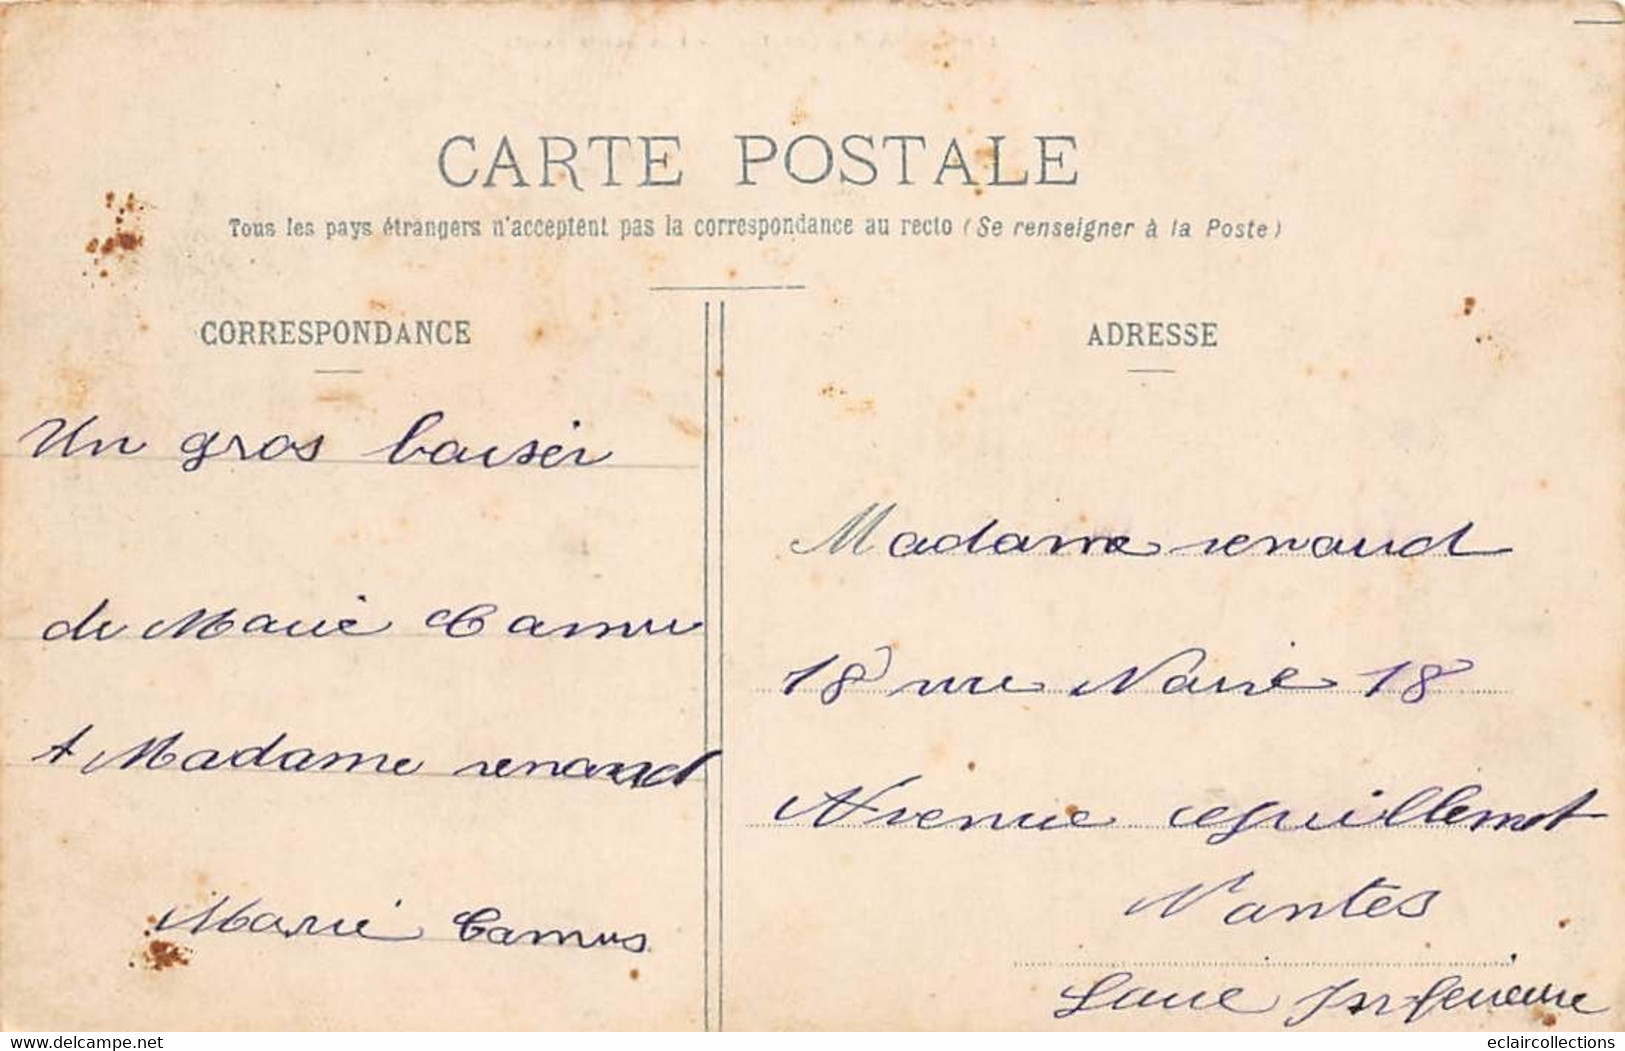 CARTE POSTALE
Tous les pays étrangers n'acceptent pas la correspondance au recto (Se renseigner à la Poste)
CORRESPONDANCE
Un gros baiser
de Marie Camu
A Madame renaud
Marie Camus
ADRESSE
Madame renaud
18 rue Noire 18
Avenue Guillemet
Nantes
Loire Inferieure
delcampe.net
eclaircollections